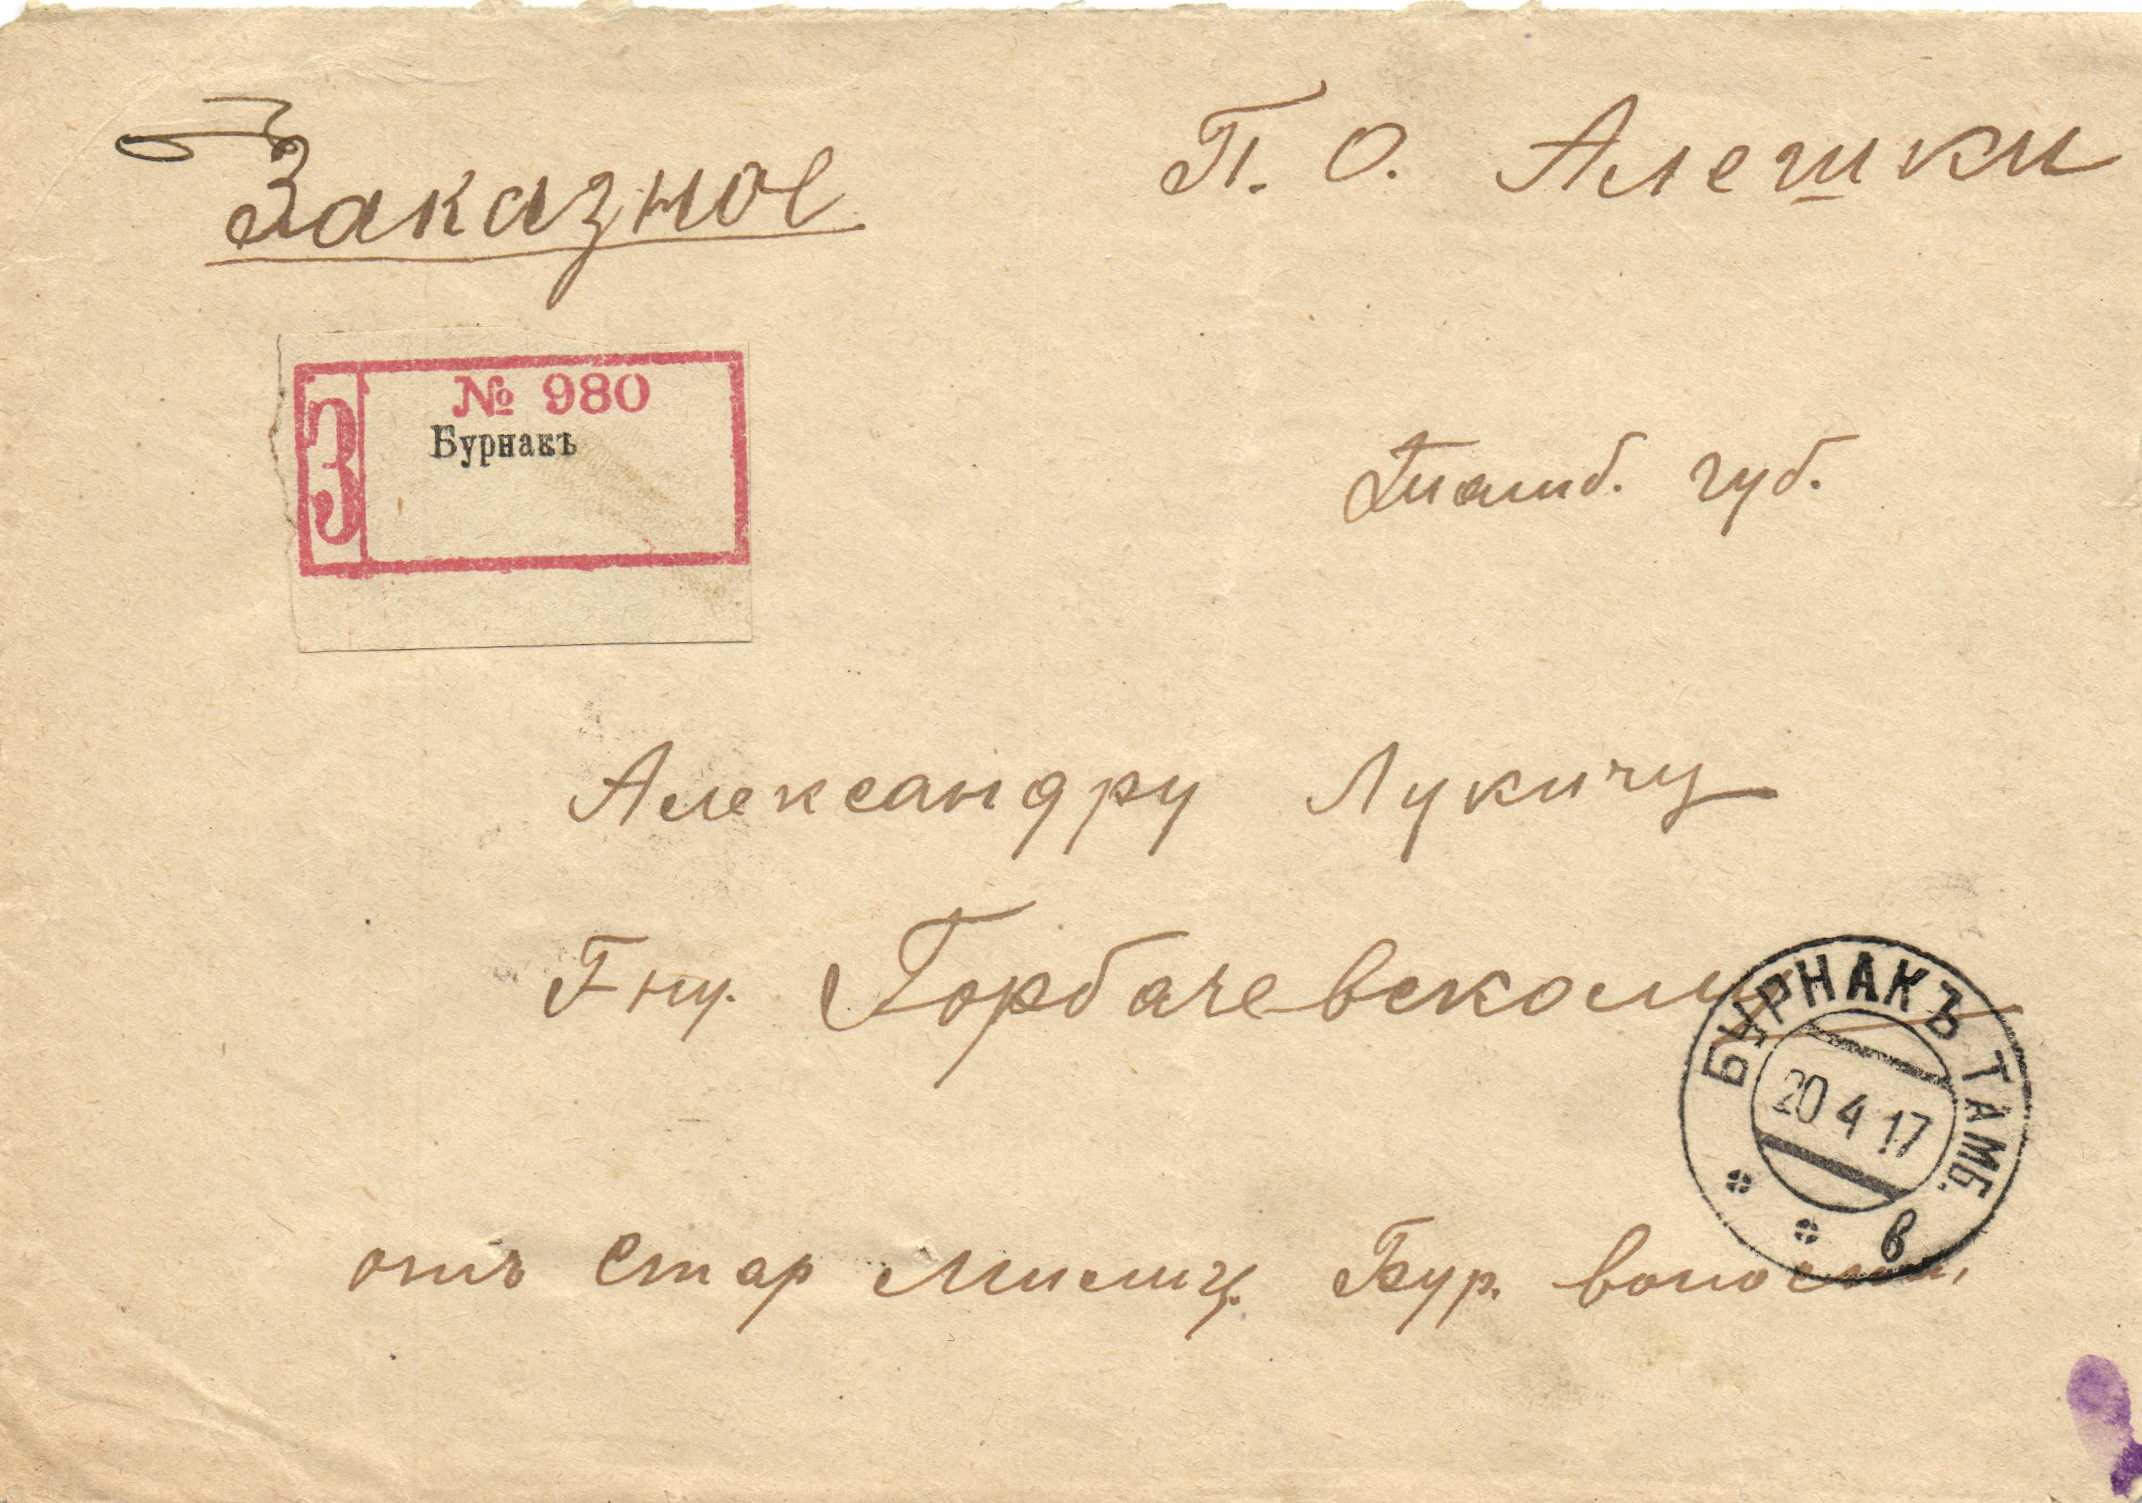 Заказное
П. О. Алешки
З
№ 980
Бурнакъ
Тамб. губ.
Александру Лукичу
Гну. Горбачевскому
БУРНАКЪ ТАМБ.
20 4 17
в
отъ Стар Милиц. Бур. волости,